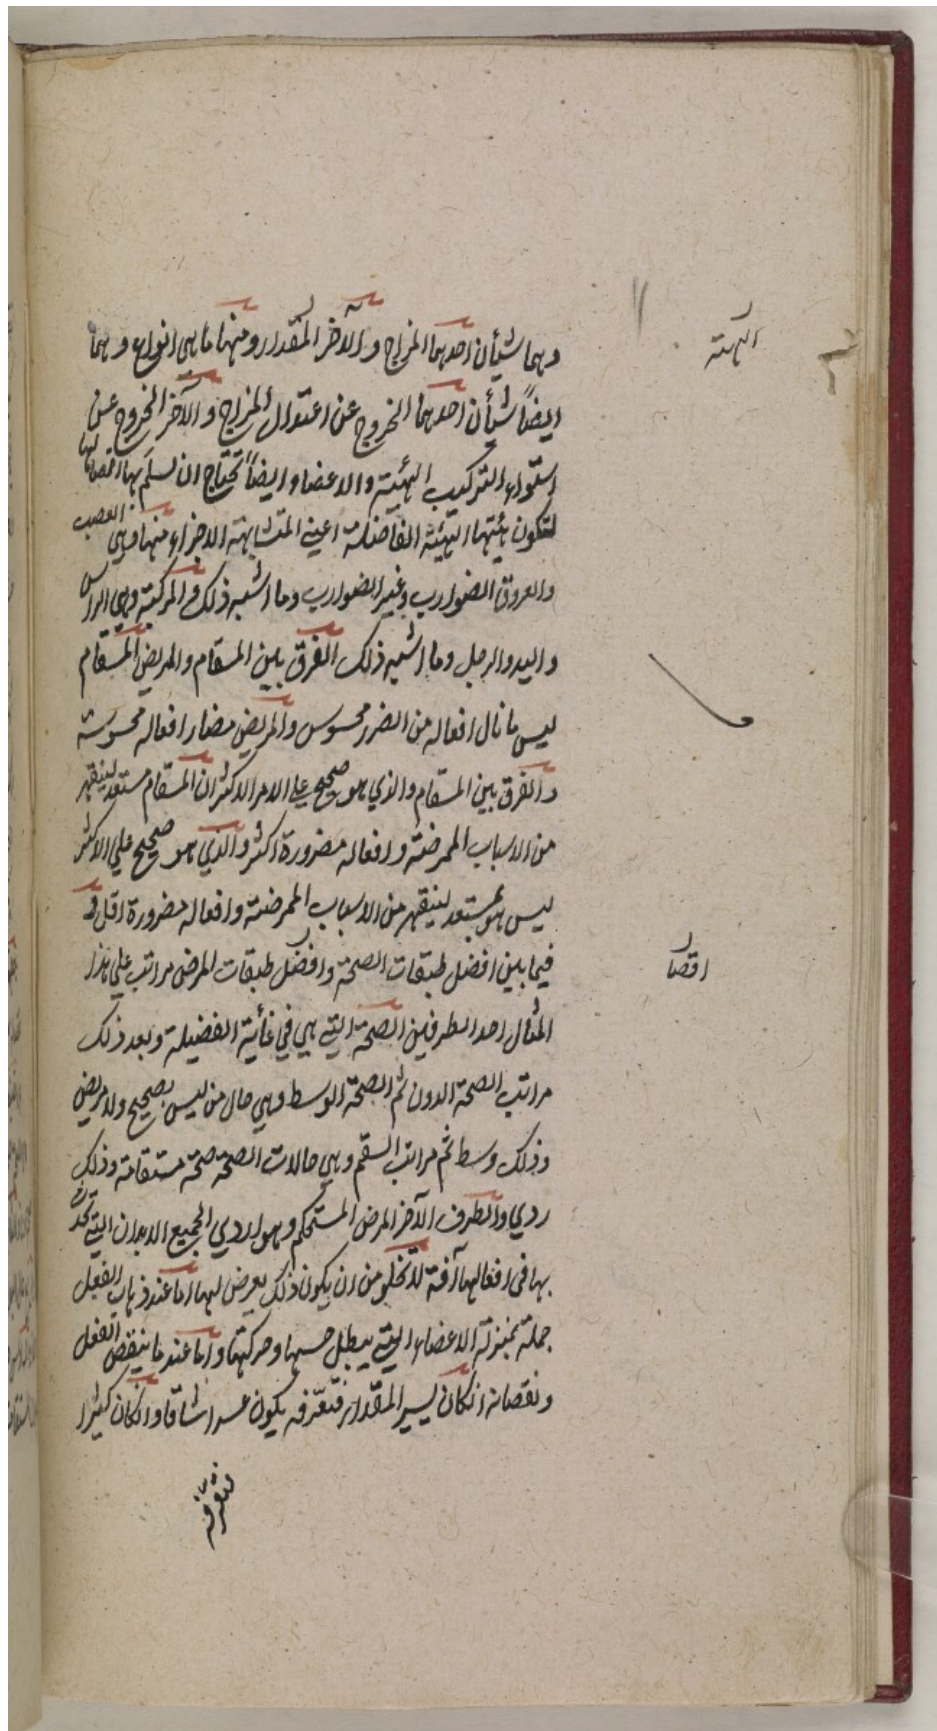 وهما شيأن احدهما المزاج والآخر المقدار ومنها ما هي انواع وهما
الهيئة
ايضاً شيأن احدهما الخروج عن اعتدال المزاج والآخر الخروج عن
استواء التركيب الهيئة والاعضاء وايضاً تحتاج ان نسلم بها اقصا لها
لتكون هيئتها الهيئة الفاضلة اعني المتشابهة الاجزاء منها وهي العصب
والعروق الضوارب وغير الضوارب وما اشبه ذلك والمركبة وهي الراس
واليد والرجل وما اشبه ذلك الفرق بين المسقام والمريض المسقام
ليس ما نال افعاله من الضرر محسوس والمريض مضار افعاله محسوسة
والفرق بين المسقام والذي هو صحيح علي الامر الاكثر ان المسقام مستعد لينقهر
من الاسباب الممرضة وافعاله مضرورة اكثر والذي هو صحيح علي الاكثر
ليس هو بمستعد لينقهر من الاسباب الممرضة وافعاله مضرورة اقل
فيما بين افضل طبقات الصحة وافضل طبقات المرض مراتب علي هذا
اقصا
المثال احد الطرفين الصحة التي هي في غائية الفضيلة وبعد ذلك
مراتب الصحة الدون ثم الصحة الوسط وهي حال من ليس بصحيح ولا مريض
وذلك وسط ثم مراتب السقم وهي حالات الصحة صحة مستقامة وذلك
ردي والطرف الآخر المرض المستحكم وهو اردي الجميع الابدان التي تحدث
بها في افعالها آفة لا تخلو من ان يكون ذلك يعرض لها اما عند ذهاب الفعل
جملة بمنزلة الاعضاء التي يبطل حسها وحركتها واما عند ما ينقص الفعل
ونقصانه انكان يسير المقدار فتعرفه يكون عسرا شاقا وانكان كثيرا
فتعرفه